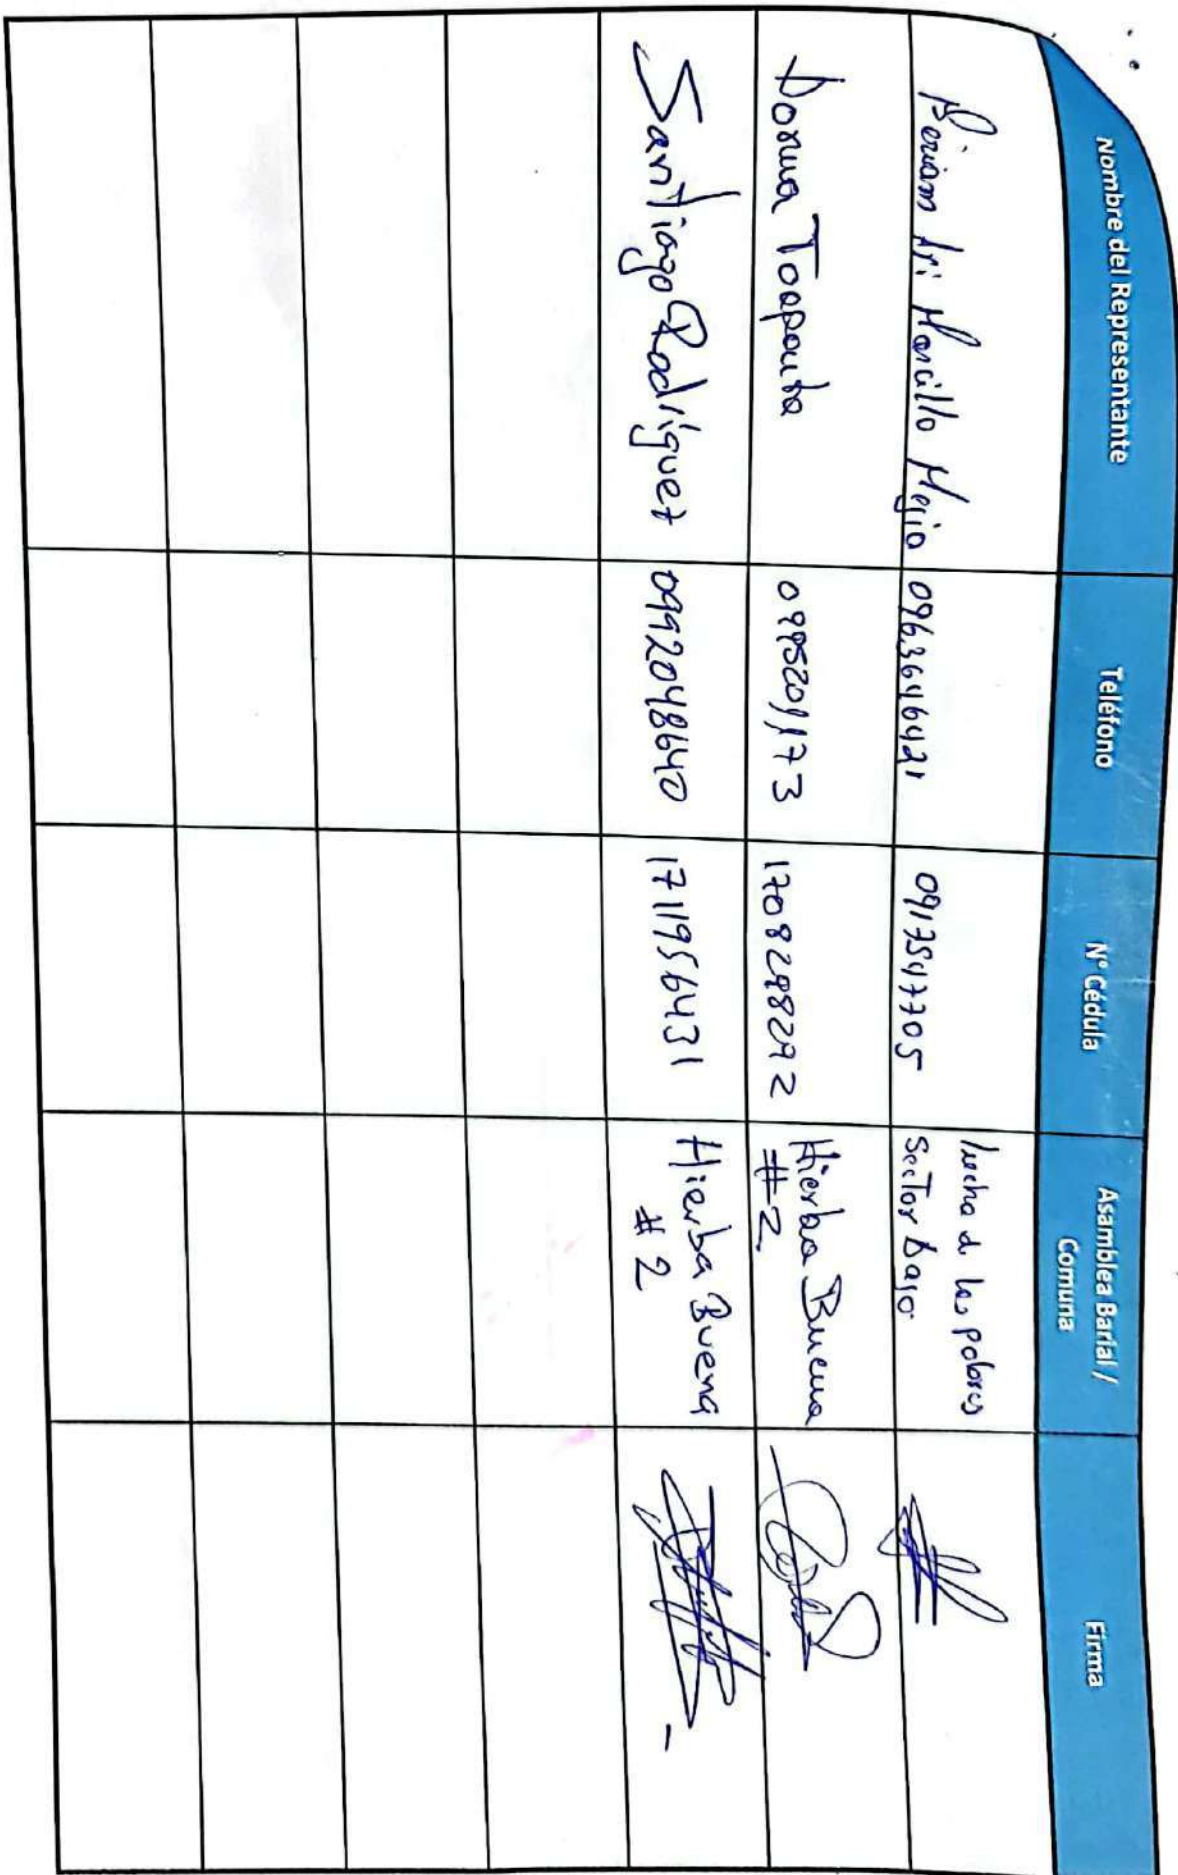 Nombre del Representante Teléfono N° Cédula Asamblea Barial / Comuna Firma
Marcillo Mejia 0963646421 0917547705 lucha de los pobres
Sector Bajo
Toapanta 1708298292 Hierba Buena
#2
Santiago Rodríguez 0992048640 1711956431 Hierba Buena
# 2